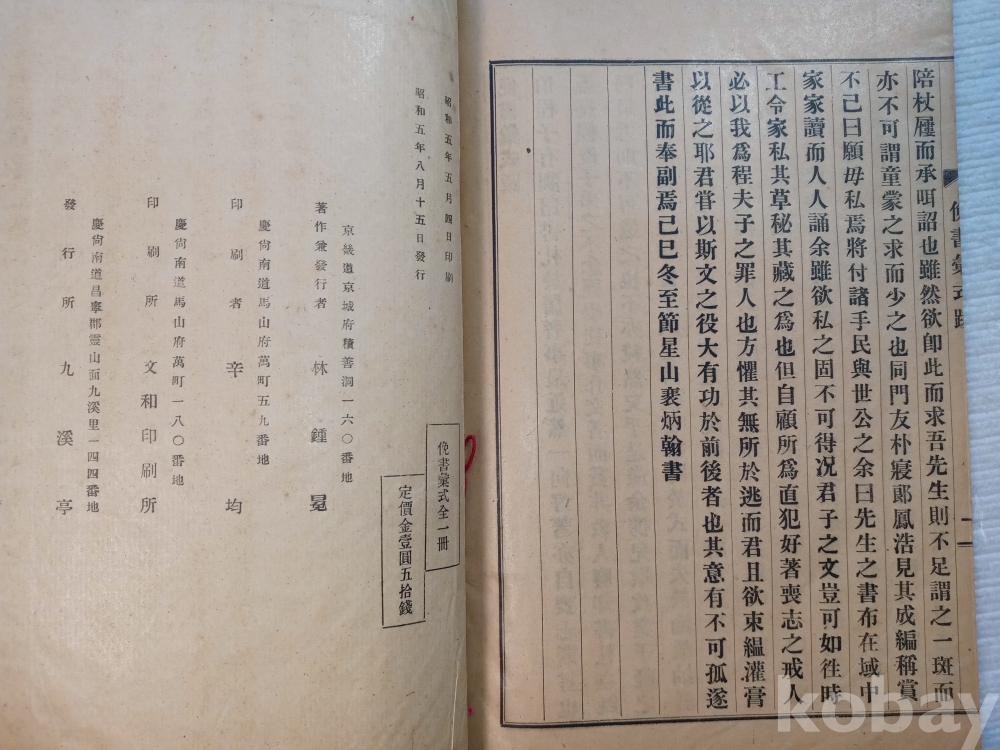 陪杖屨而承咡詔也雖然欲卽此而求吾先生則不足謂之一斑而
亦不可謂童蒙之求而少之也同門友朴寢郞鳳浩見其成編稱賞
不已曰願毋私焉將付諸手民與世公之余曰先生之書布在域中
家家讀而人人誦余雖欲私之固不可得況君子之文豈可如徃時
工令家私其草秘其藏之爲也但自顧所爲直犯好著喪志之戒人
必以我爲程夫子之罪人也方懼其無所於逃而君且欲束縕灌膏
以從之耶君甞以斯文之役大有功於前後者也其意有不可孤遂
書此而奉副焉己巳冬至節星山裵炳翰書
俛書彙式跋
一
昭和五年五月四日印刷
昭和五年八月十五日發行
京畿道京城府積善洞一六〇番地
著作兼發行者 林鍾冕
慶尙南道馬山府萬町五九番地
印刷者 辛均
慶尙南道馬山府萬町一八〇番地
印刷所 文和印刷所
慶尙南道昌寧郡靈山面九溪里一四四番地
發行所 九溪亭
俛書彙式全一冊
定價金壹圓五拾錢
kobay